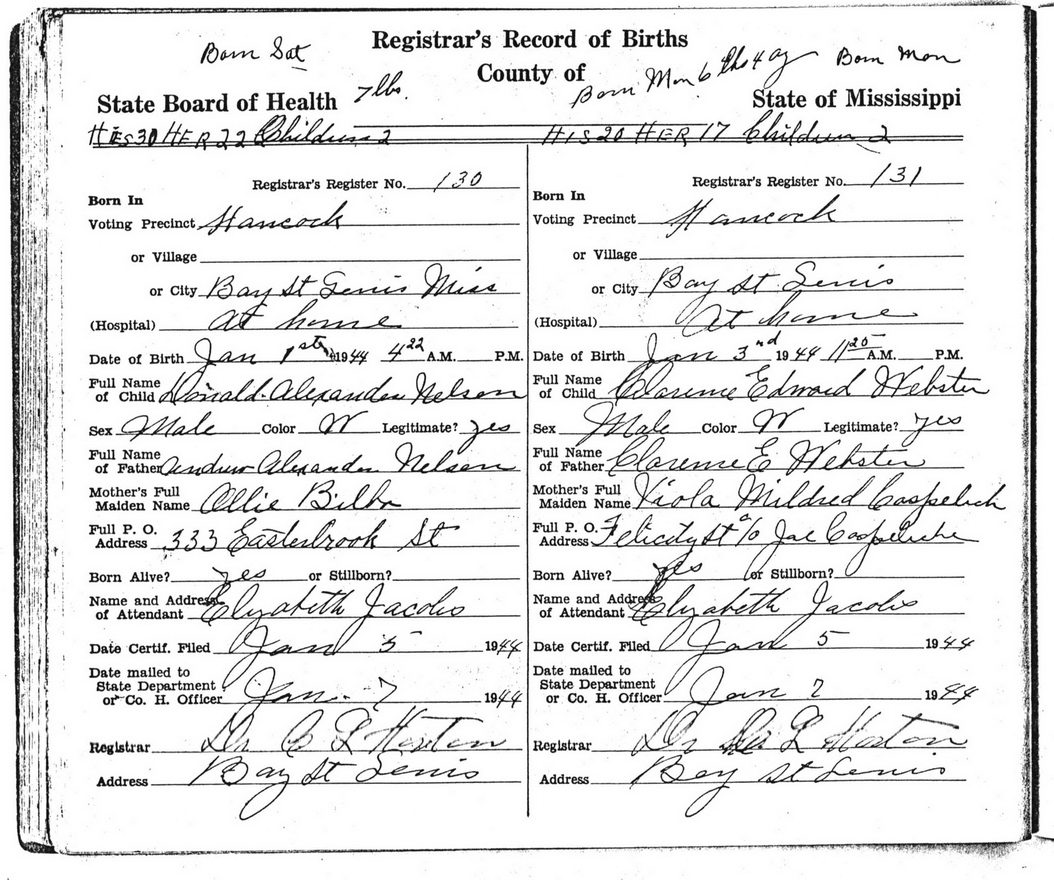 Registrar's Record of Births
Born Sat
County of
Born Mon 6 lbs 4 oz
Born Mon
State Board of Health
7 lbs.
State of Mississippi
HIS 30 HER 22 Children 2
Registrar's Register No. 130
Born In
Voting Precinct Hancock
or Village
or City Bay St Louis Miss
(Hospital) At home
Date of Birth Jan 1st 1944 4 22 A.M. P.M.
Full Name
of Child Donald Alexander Nelson
Sex Male Color W Legitimate? yes
Full Name
of Father Andrew Alexander Nelson
Mother's Full
Maiden Name Ollie Bilbo
Full P. O.
Address 333 Easterbrook St
Born Alive? yes or Stillborn?
Name and Address
of Attendant Elyzabeth Jacobs
Date Certif. Filed Jan 5 1944
Date mailed to
State Department
or Co. H. Officer Jan. 7 1944
Registrar Dr C L Horton
Address Bay St Louis
HIS 20 HER 17 Children 2
Registrar's Register No. 131
Born In
Voting Precinct Hancock
or Village
or City Bay St. Louis
(Hospital) At home
Date of Birth Jan 3rd 1944 11 20 A.M. P.M.
Full Name
of Child Clarence Edward Webster
Sex Male Color W Legitimate? yes
Full Name
of Father Clarence E Webster
Mother's Full
Maiden Name Viola Mildred
Full P. O.
Address Felicity St c/o Joe
Born Alive? yes or Stillborn?
Name and Address
of Attendant Elyzabeth Jacobs
Date Certif. Filed Jan 5 1944
Date mailed to
State Department
or Co. H. Officer Jan 7 1944
Registrar Dr L Horton
Address Bay St Louis